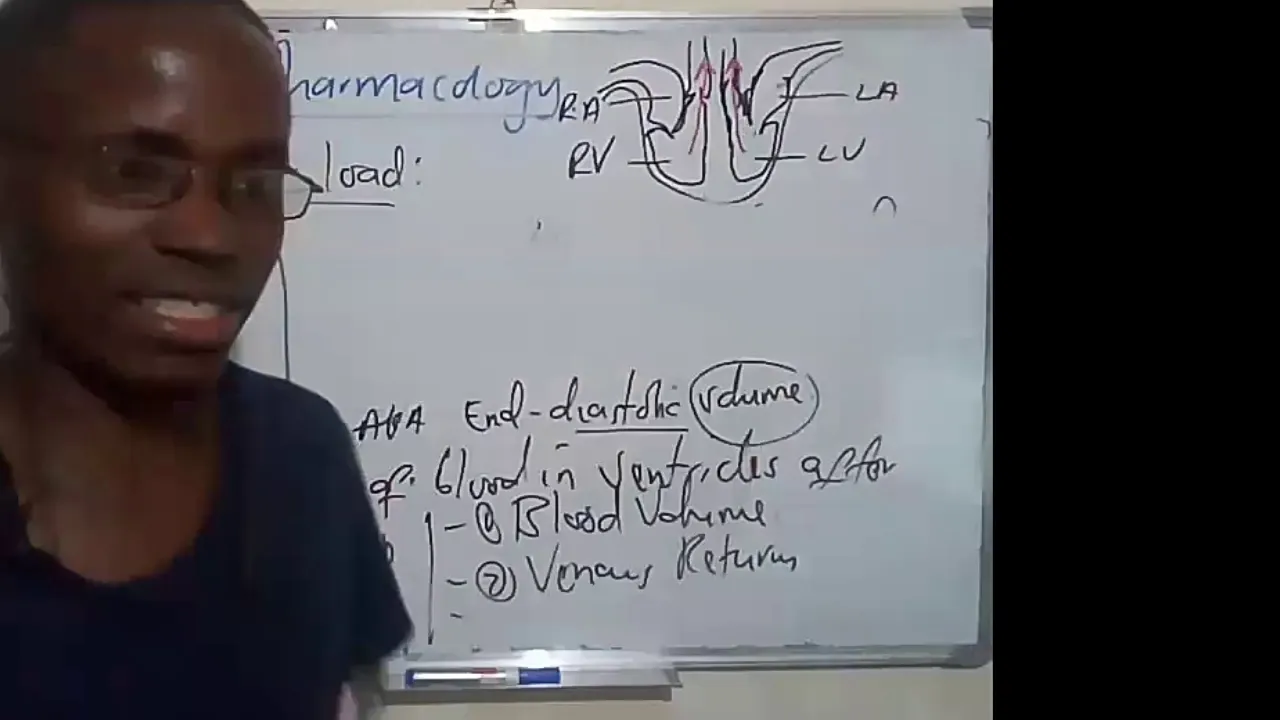 harmacology
R.A
LA
RV
LV
load:
AKA End-diastolic volume
of blood in ventricles after
- ① Blood Volume
- ② Venous Return
-